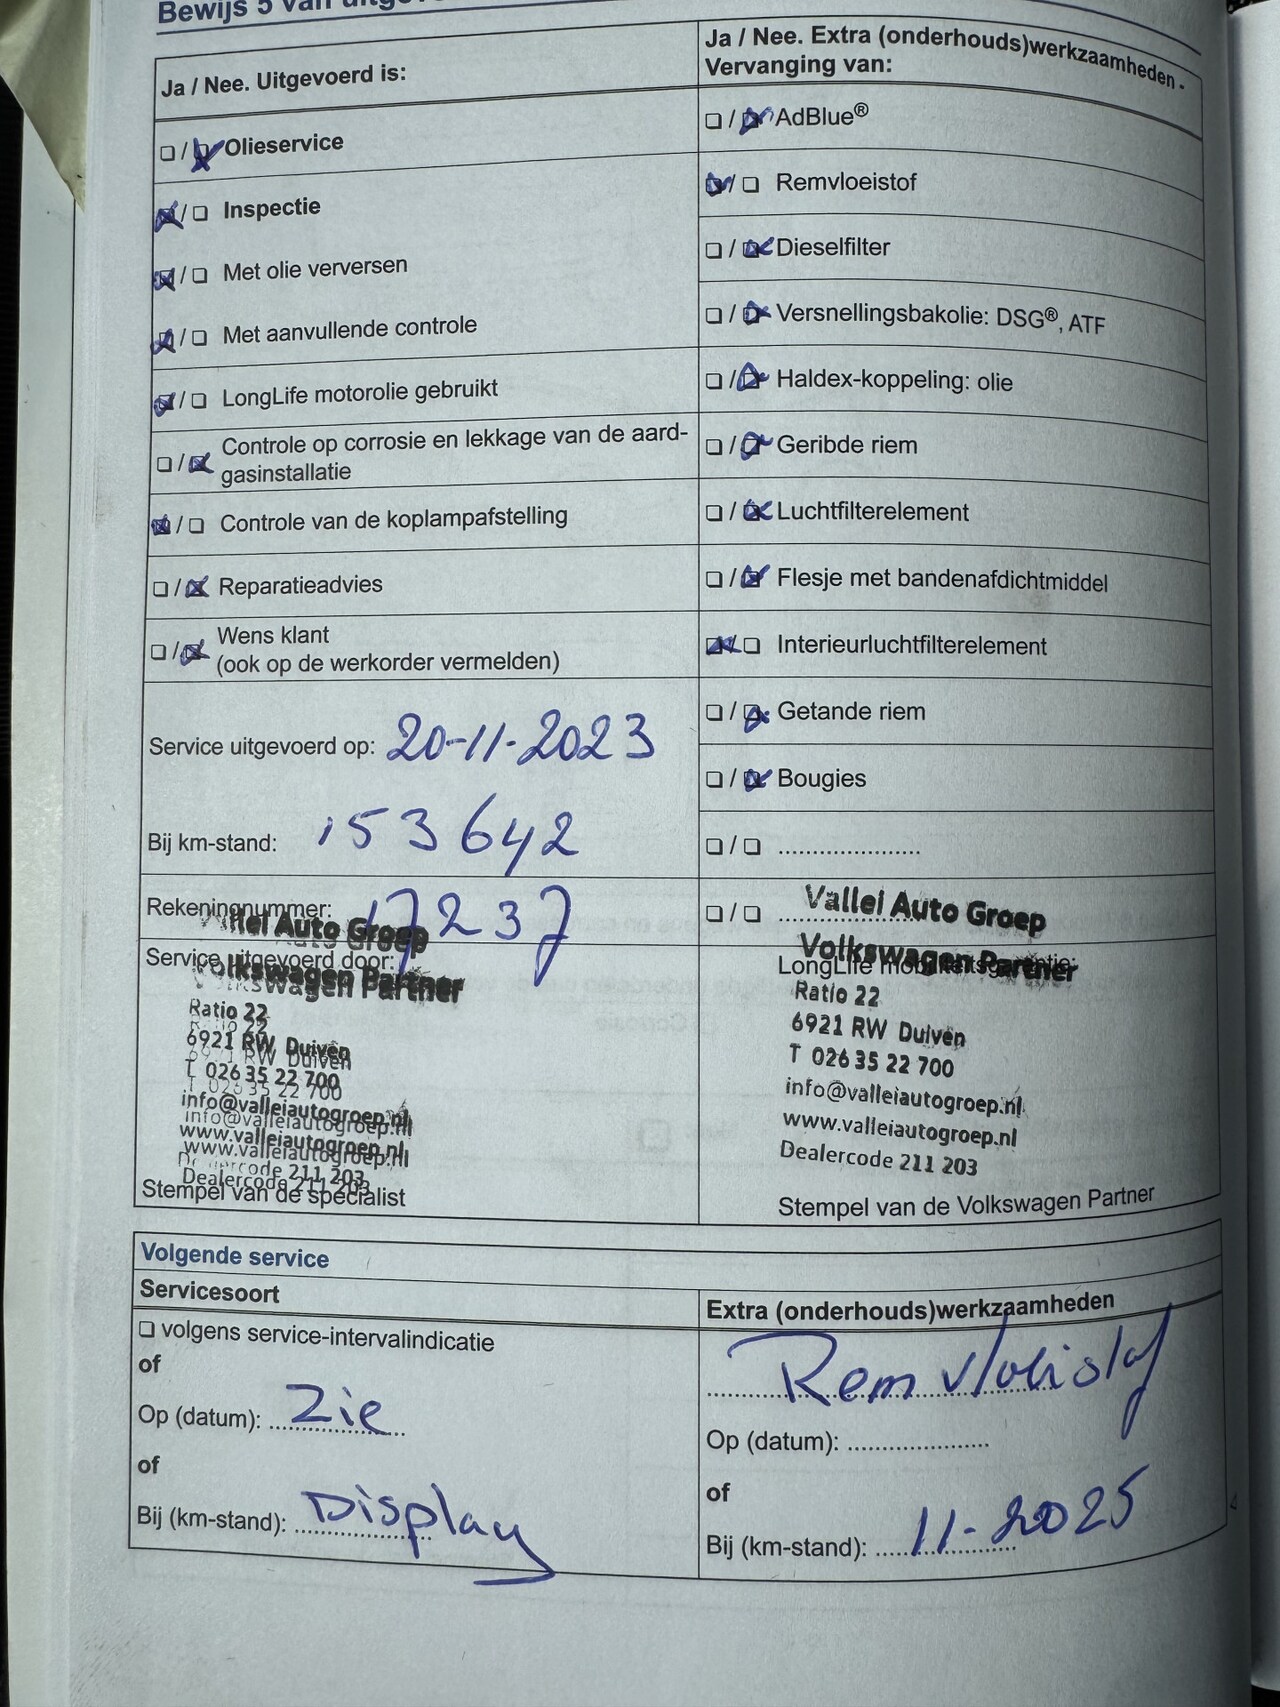 Bewijs 5 van
Ja / Nee. Uitgevoerd is:
☐ / ☒ Olieservice
☒ / ☐ Inspectie
☒ / ☐ Met olie verversen
☒ / ☐ Met aanvullende controle
☒ / ☐ LongLife motorolie gebruikt
☐ / ☒ Controle op corrosie en lekkage van de aard-
gasinstallatie
☒ / ☐ Controle van de koplampafstelling
☐ / ☒ Reparatieadvies
☐ / ☒ Wens klant
(ook op de werkorder vermelden)
Service uitgevoerd op: 20-11-2023
Bij km-stand: 153642
Rekeningnummer: 17237
Service uitgevoerd door:
Vallei Auto Groep
Volkswagen Partner
Ratio 22
6921 RW Duiven
T 026 35 22 700
info@valleiautogroep.nl
www.valleiautogroep.nl
Dealercode 211 203
Stempel van de specialist
Ja / Nee. Extra (onderhouds)werkzaamheden -
Vervanging van:
☐ / ☒ AdBlue®
☒ / ☐ Remvloeistof
☐ / ☒ Dieselfilter
☐ / ☒ Versnellingsbakolie: DSG®, ATF
☐ / ☒ Haldex-koppeling: olie
☐ / ☒ Geribde riem
☐ / ☒ Luchtfilterelement
☐ / ☒ Flesje met bandenafdichtmiddel
☒ / ☐ Interieurluchtfilterelement
☐ / ☒ Getande riem
☐ / ☒ Bougies
☐ / ☐ .....................
☐ / ☐ .....................
Vallei Auto Groep
Volkswagen Partner
LongLife mobiliteitsgarantie:
Ratio 22
6921 RW Duiven
T 026 35 22 700
info@valleiautogroep.nl
www.valleiautogroep.nl
Dealercode 211 203
Stempel van de Volkswagen Partner
Volgende service
Servicesoort
☐ volgens service-intervalindicatie
of
Op (datum): Zie
of
Bij (km-stand): Display
Extra (onderhouds)werkzaamheden
Remvloeistof
Op (datum): .....................
of
Bij (km-stand): 11-2025